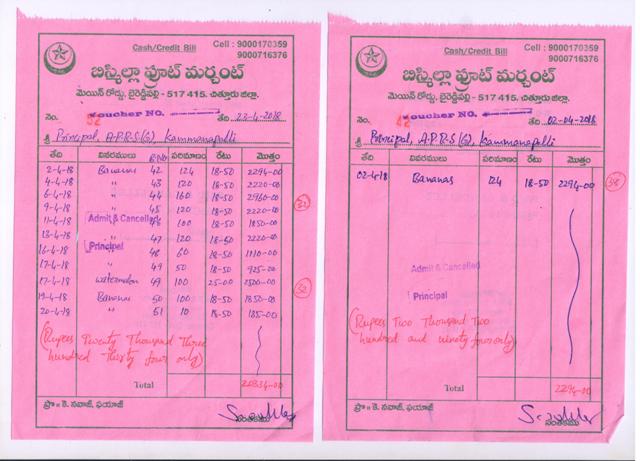 Cash/Credit Bill
Cell : 9000170359
9000716376
బిస్మిల్లా ఫ్రూట్ మర్చంట్
మెయిన్ రోడ్డు, బైరెడ్డిపల్లి - 517 415. చిత్తూరు జిల్లా.
నెం. 52 Voucher NO. తేది 23-4-2018
శ్రీ Principal, A.P.R.S (G), Kammanapalli
తేది వివరములు B.No పరిమాణం రేటు మొత్తం
2-4-18 Bananas 42 124 18-50 2294-00
4-4-18 " 43 120 18-50 2220-00
6-4-18 " 44 160 18-50 2960-00
9-4-18 " 45 120 18-50 2220-00
11-4-18 46 100 18-50 1850-00
Admit & Cancelled
13-4-18 " 47 120 18-50 2220-00
16-4-18 48 60 18-50 1110-00
Principal
17-4-18 " 49 50 18-50 925-00
17-4-18 watermelon 49 100 25-00 2500-00
19-4-18 Bananas 50 100 18-50 1850-00
20-4-18 " 51 10 18-50 185-00
(Rupees Twenty Thousand Three
hundred Thirty four only)
Total 20334-00
ప్రొ॥ కె. నవాజ్, ఫయాజ్
సంతకము
Cash/Credit Bill
Cell : 9000170359
9000716376
బిస్మిల్లా ఫ్రూట్ మర్చంట్
మెయిన్ రోడ్డు, బైరెడ్డిపల్లి - 517 415. చిత్తూరు జిల్లా.
నెం. 42 Voucher NO. తేది 02-04-2018
శ్రీ Principal, A.P.R.S (G), Kammanapalli
తేది వివరములు పరిమాణం రేటు మొత్తం
02-4-18 Bananas 124 18-50 2294-00
38
Admit & Cancelled
Principal
(Rupees Two Thousand Two
hundred and ninety four only)
Total 2294-00
ప్రొ॥ కె. నవాజ్, ఫయాజ్
సంతకము